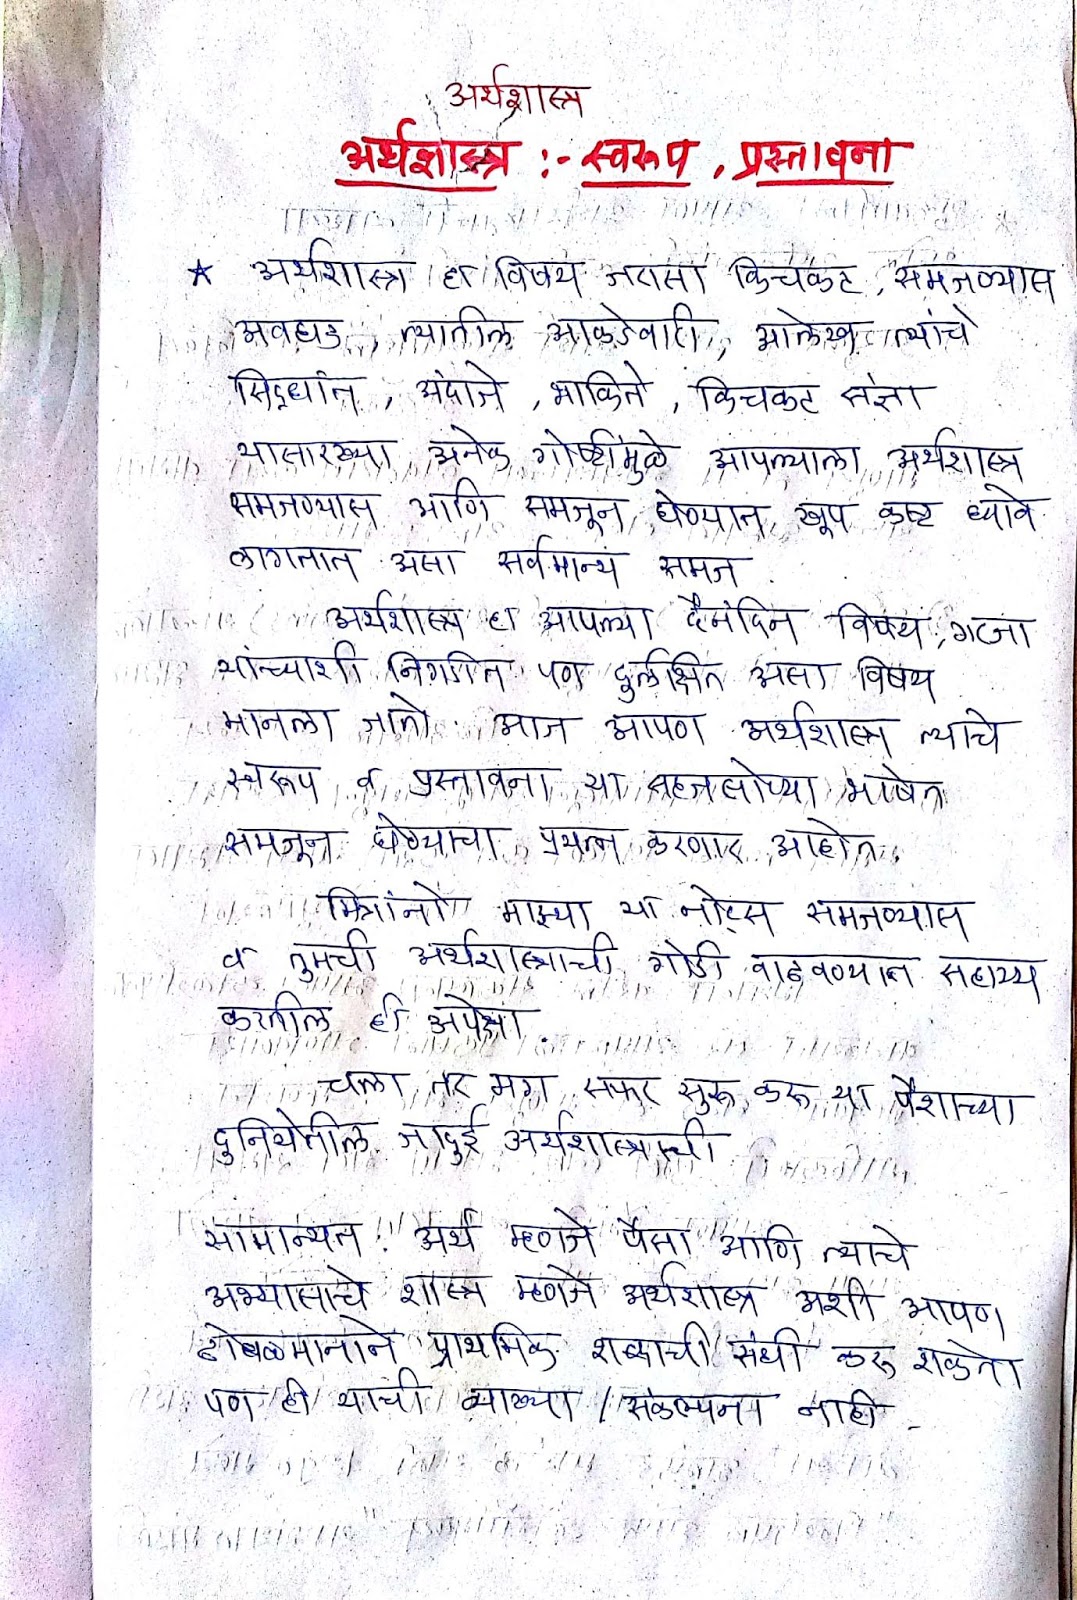 अर्थशास्त्र
अर्थशास्त्र :- स्वरूप , प्रस्तावना
★ अर्थशास्त्र हा विषय जरासा किचकट , समजण्यास
अवघड , त्यातील आकडेवारी , आलेख त्यांचे
सिद्धांत , अंदाजे , भाकिते , किचकट संज्ञा
यासारख्या अनेक गोष्टींमुळे आपल्याला अर्थशास्त्र
समजण्यास आणि समजून घेण्यात खूप कष्ट घ्यावे
लागतात असा सर्वमान्य समज .
अर्थशास्त्र हा आपल्या दैनंदिन विषय , गरजा
यांच्याशी निगडीत पण दुर्लक्षित असा विषय
मानला जातो . आज आपण अर्थशास्त्र त्याचे
स्वरूप व प्रस्तावना या सहजसोप्या भाषेत
समजून घेण्याचा प्रयत्न करणार आहोत .
मित्रांनो माझ्या या नोट्स समजण्यास
व तुमची अर्थशास्त्राची गोडी वाढवण्यात सहाय्य
करतील ही अपेक्षा .
चला तर मग सफर सुरू करू या पैशाच्या
दुनियेतील जादुई अर्थशास्त्राची
सामान्यत : अर्थ म्हणजे पैसा आणि त्याचे
अभ्यासाचे शास्त्र म्हणजे अर्थशास्त्र अशी आपण
ढोबळमानाने प्राथमिक शब्दाची संधी करू शकतो
पण ही याची व्याख्या / संकल्पना नाही .